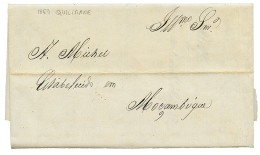 1853 QUILIMANE
Illmo Snr.
A. Michel
Estabelecido em
Moçambique